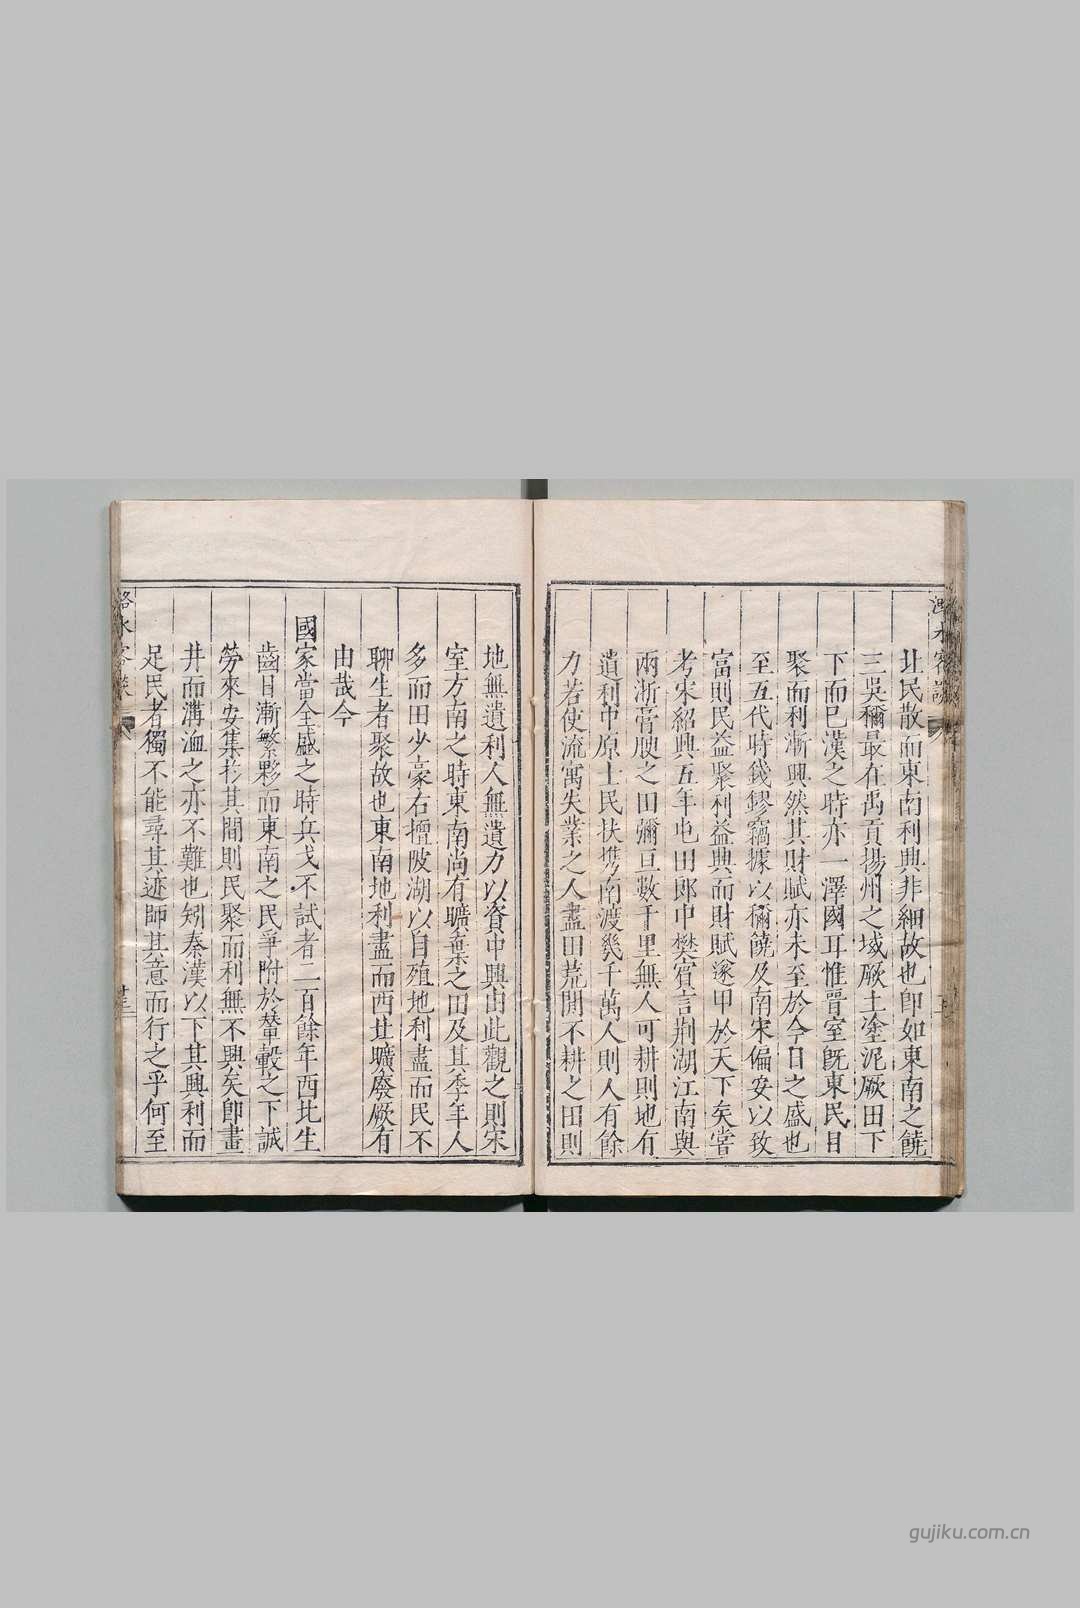 北民散而東南利興非細故也即如東南之饒
三吳稱最在禹貢揚州之域厥土塗泥厥田下
下而已漢之時亦一澤國耳惟晉室既東民日
聚而利漸興然其財賦亦未至於今日之盛也
至五代時錢鏐竊據以稱饒及南宋偏安以致
富則民益聚利益興而財賦遂甲於天下矣嘗
考宋紹興五年屯田郎中樊賓言荆湖江南與
兩浙膏腴之田彌亘數千里無人可耕則地有
遺利中原士民扶携南渡幾千萬人則人有餘
力若使流寓失業之人盡田荒閒不耕之田則
地無遺利人無遺力以資中興由此觀之則宋
室方南之時東南尚有曠棄之田及其季年人
多而田少豪右擅陂湖以自殖地利盡而民不
聊生者聚故也東南地利盡而西北曠廢厥有
由哉今
國家當全盛之時兵戈不試者二百餘年西北生
齒日漸繁夥而東南之民爭附於輦轂之下誠
勞來安集於其間則民聚而利無不興矣即畫
井而溝洫之亦不難也矧秦漢以下其興利而
足民者獨不能尋其迹師其意而行之乎何至
潞水客談
廿三
gujiku.com.cn